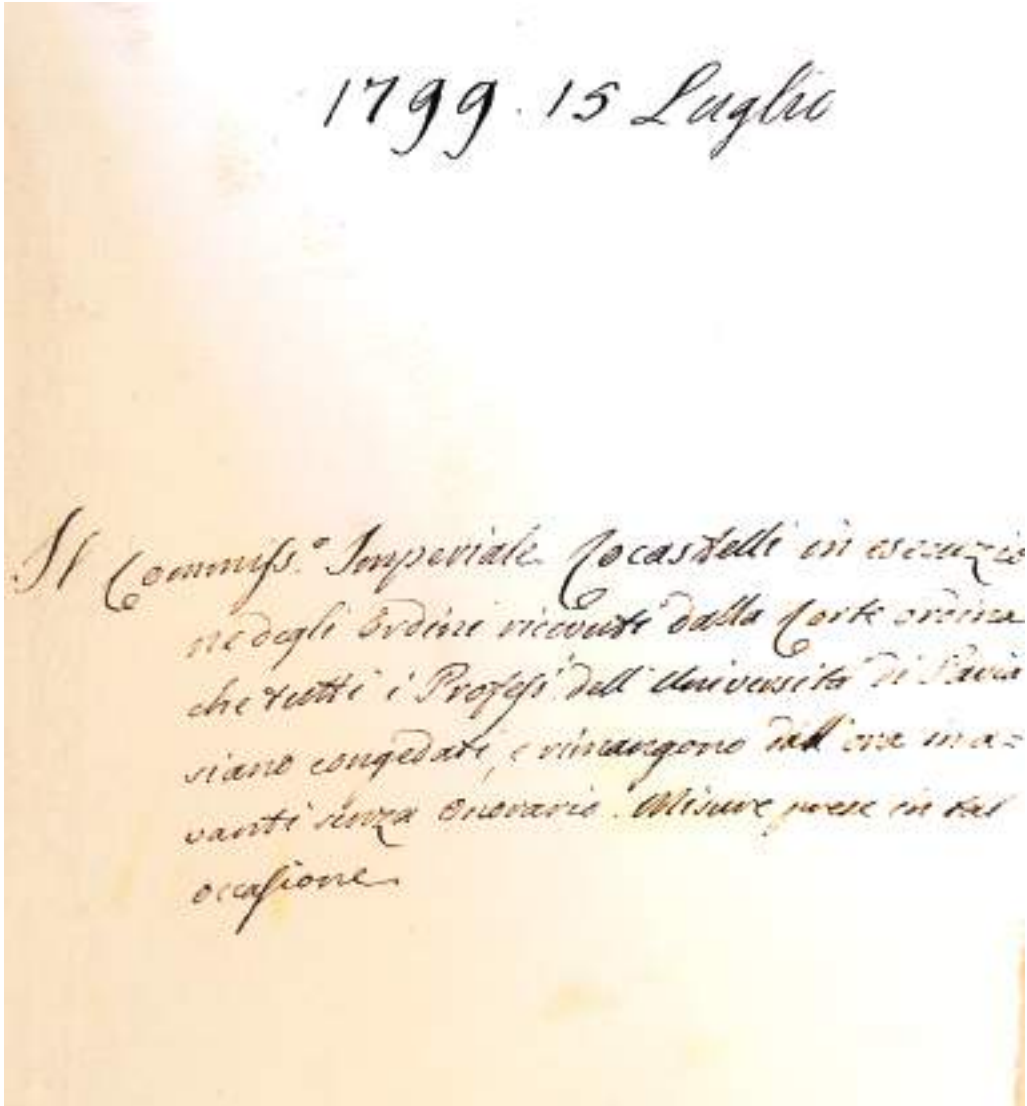 1799. 15 Luglio
Il Commiss.º Imperiale Cocastelli in esecuzio
ne degli Ordini ricevuti dalla Corte ordina
che tutti i Profess.i dell' Università di Pavia
siano congedati, e rimangono dall' ora in a=
vanti senza Onorario. Misure prese in tal
occasione